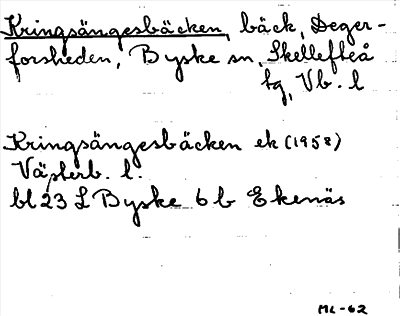 Kringsängesbäcken, bäck, Deger-
forsheden, Byske sn, Skellefteå
tg, Vb. l
Kringsängesbäcken ek (1958)
Västerb. l.
bl 23 L Byske 6 b Ekenäs
ML-62